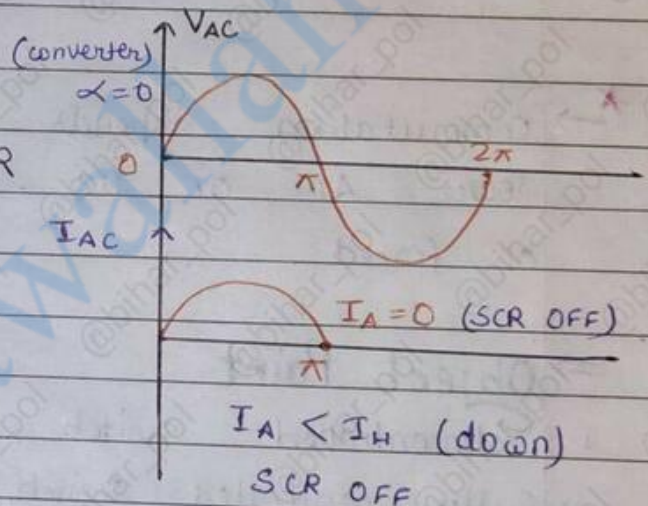 V_AC
(converter)
α=0
R
0
π
2π
I_AC
I_A = 0 (SCR OFF)
π
I_A < I_H (down)
SCR OFF
@bihar_pol